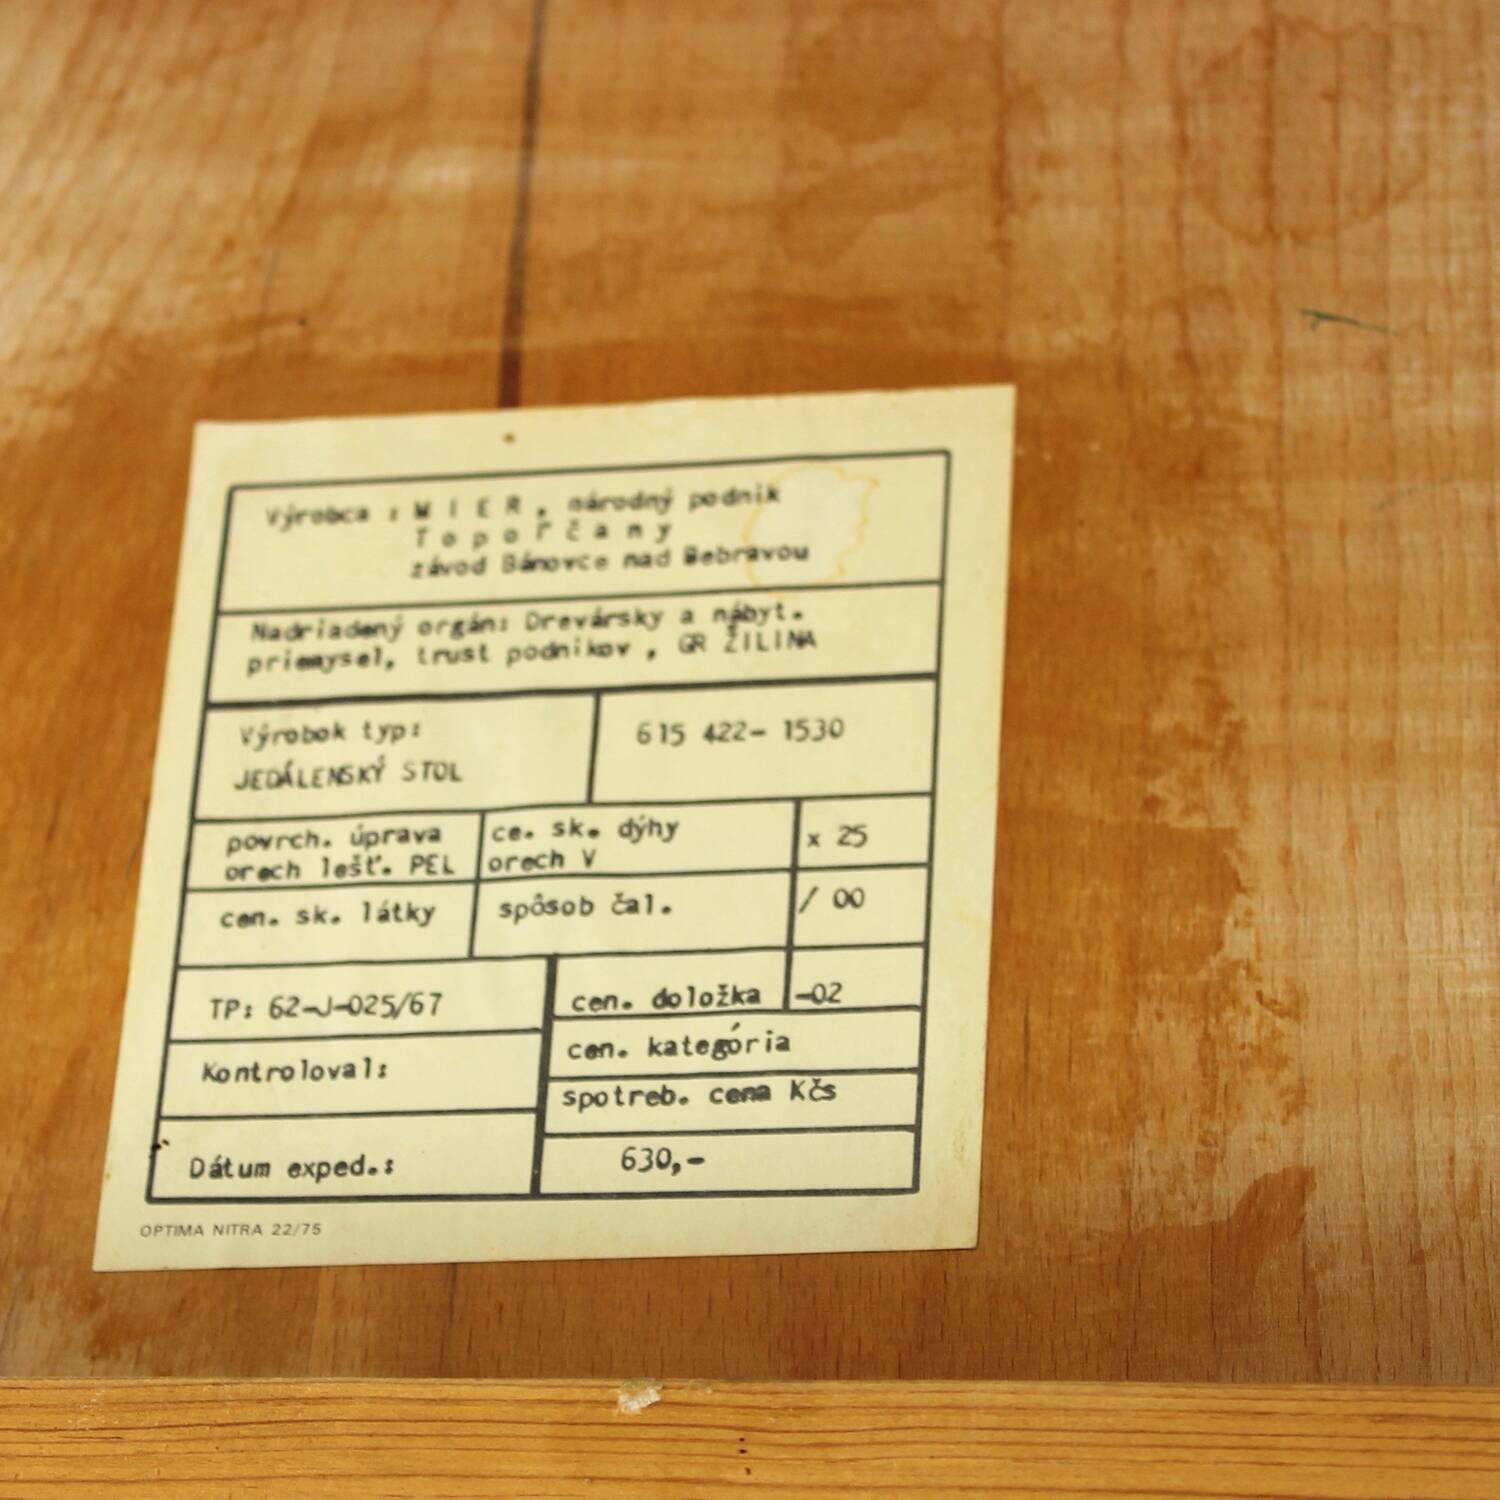 Výrobca : M I E R , národný podnik
T o p o ľ č a n y
závod Bánovce nad Bebravou
Nadriadený orgán: Drevársky a nábyt.
priemysel, trust podnikov , GR ŽILINA
Výrobok typ:
JEDÁLENSKÝ STOL
615 422- 1530
povrch. úprava
orech lešť. PEL
ce. sk. dýhy
orech V
x 25
cen. sk. látky
spôsob čal.
/ 00
TP: 62-J-025/67
cen. doložka
-02
Kontroloval:
cen. kategória
spotreb. cena Kčs
Dátum exped.:
630,-
OPTIMA NITRA 22/75